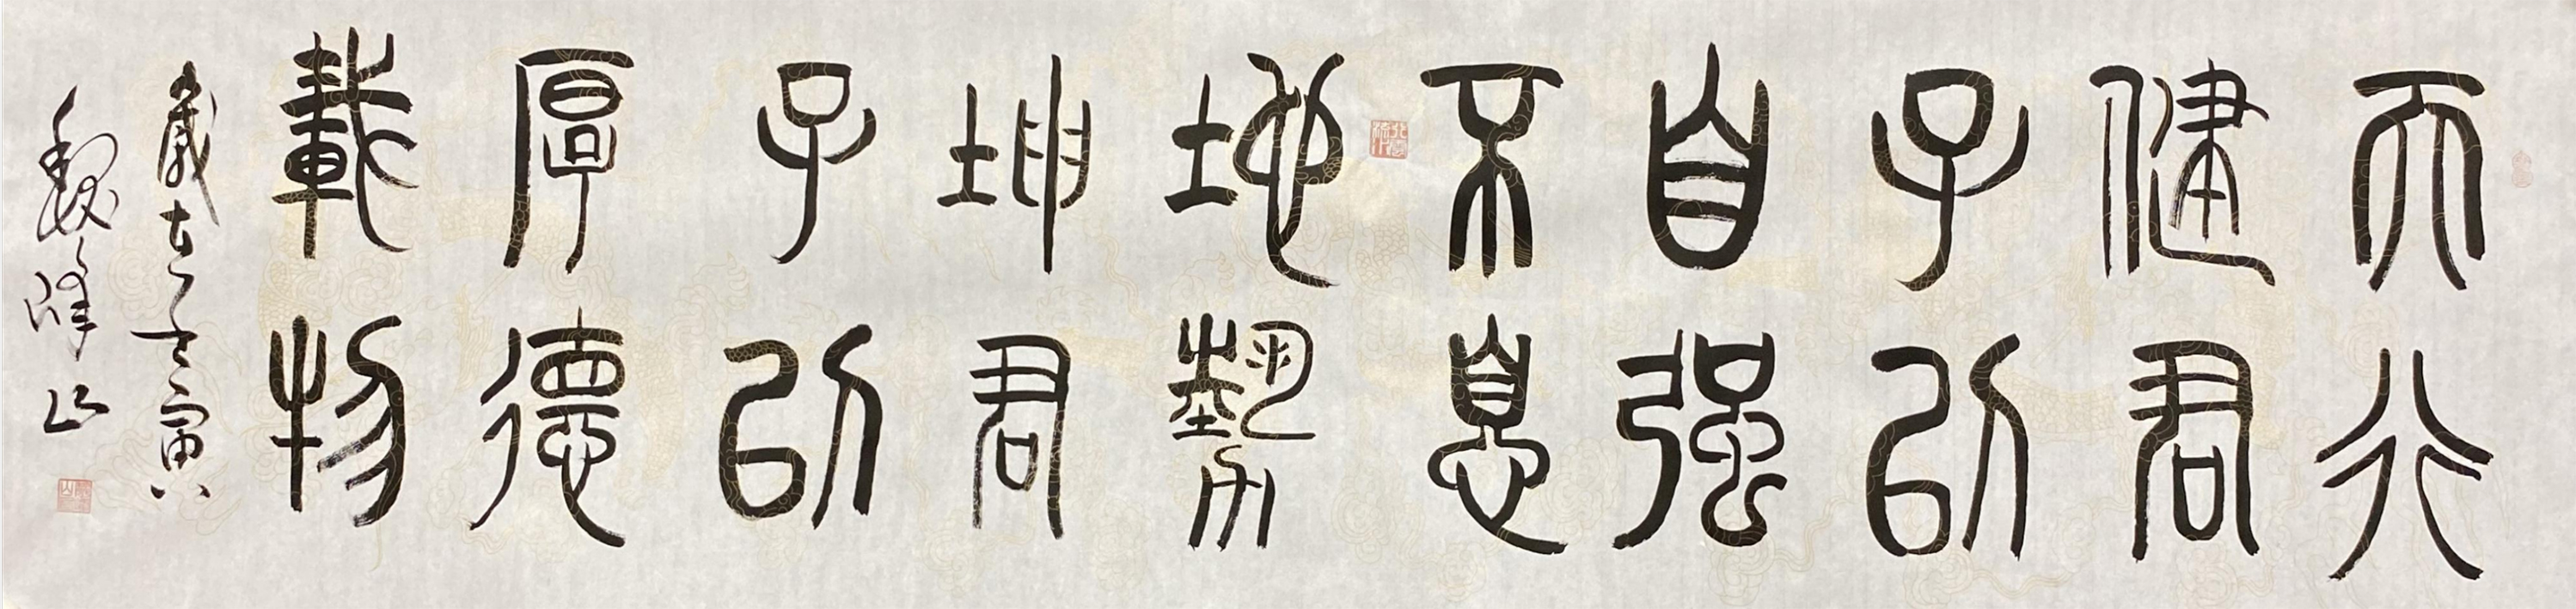 天行
健君
子以
自强
不息
地勢
坤君
子以
厚德
載物
歲在壬寅
魏峰山